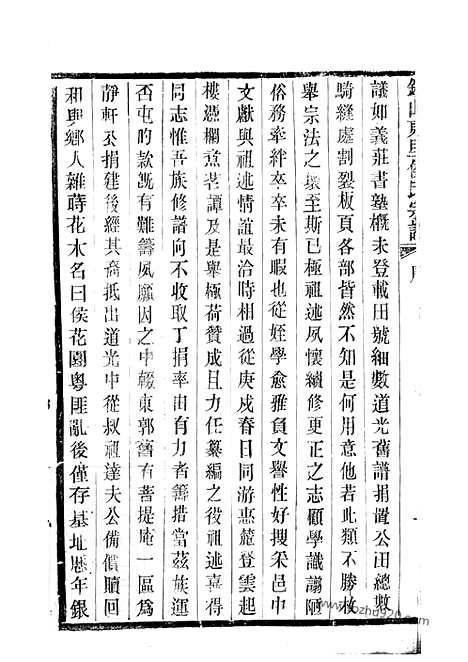 錫山東里侯氏宗譜 序
議如義莊書塾概未登載田號細數道光舊譜捐置公田總數
騎縫處割裂板頁各部皆然不知是何用意他若此類不勝枚
舉宗法之壞至斯已極祖述夙懷續修更正之志顧學識譾陋
俗務牽絆卒卒未有暇也從姪學愈雅負文譽性好搜采邑中
文獻與祖述情誼最洽時相過從庚戌春日同游惠麓登雲起
樓憑欄煑茗譚及是舉極荷贊成且力任纂編之役祖述喜得
同志惟吾族修譜向不收取丁捐率由有力者籌措當茲族運
否屯的款旣有難籌夙願因之中輟東郭舊有菩提庵一區爲
靜軒公捐建後經其裔抵出道光中從叔祖達夫公備償贖回
和輿鄉人雜蒔花木名曰侯花園粵匪亂後僅存基址歷年銀
bozhu920.com